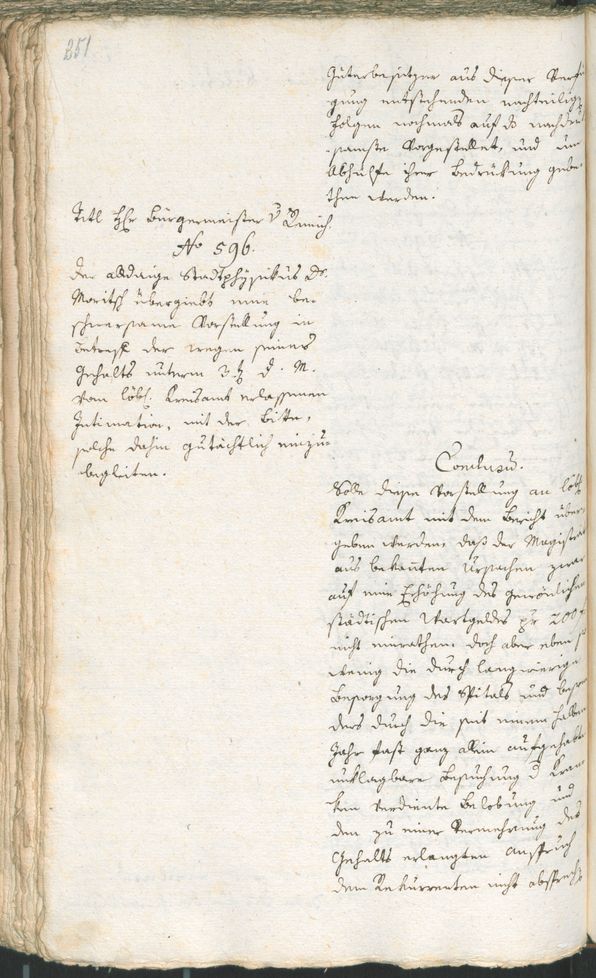 251
Güterbesitzer aus dieser Verfü
gung entstehenden nachteilige
Folgen nochmals auf das nachdrük
samste Vorgestellet, und um
Abhülfe ihrer Bedrükung gebe
then werden.
Titl Hr Bürgermeister v
No 596.
Der alldaige Stadtphysikus Dr.
Moritsch übergiebt eine be-
schwersame Vorstellung in
Betreff der wegen seines
Gehalts unterm d. M.
vom löbl. Kreisamt erlassenen
Intimation, mit der Bitte,
solche dahin gutächtlich einzu
begleiten.
Conclusum.
Solle diese Vorstellung an löbl
Kreisamt mit dem Bericht über-
geben werden, daß der Magistrat
aus bekanten Ursachen zwar
auf eine Erhöhung des gewönlichen
städtischen Wartgeldes pr 200
nicht einrathen: doch aber eben so
wenig die durch langwierige
Besorgung des Spitals und beson
ders durch die seit einem halben
Jahr fast ganz allein aufgehabte
unklagbare Besuchung d Kran
ken verdiente Belobung und
den zu einer Vermehrung des
Gehalts erlangten Anspruch
dem Rekurrenten nicht absprech